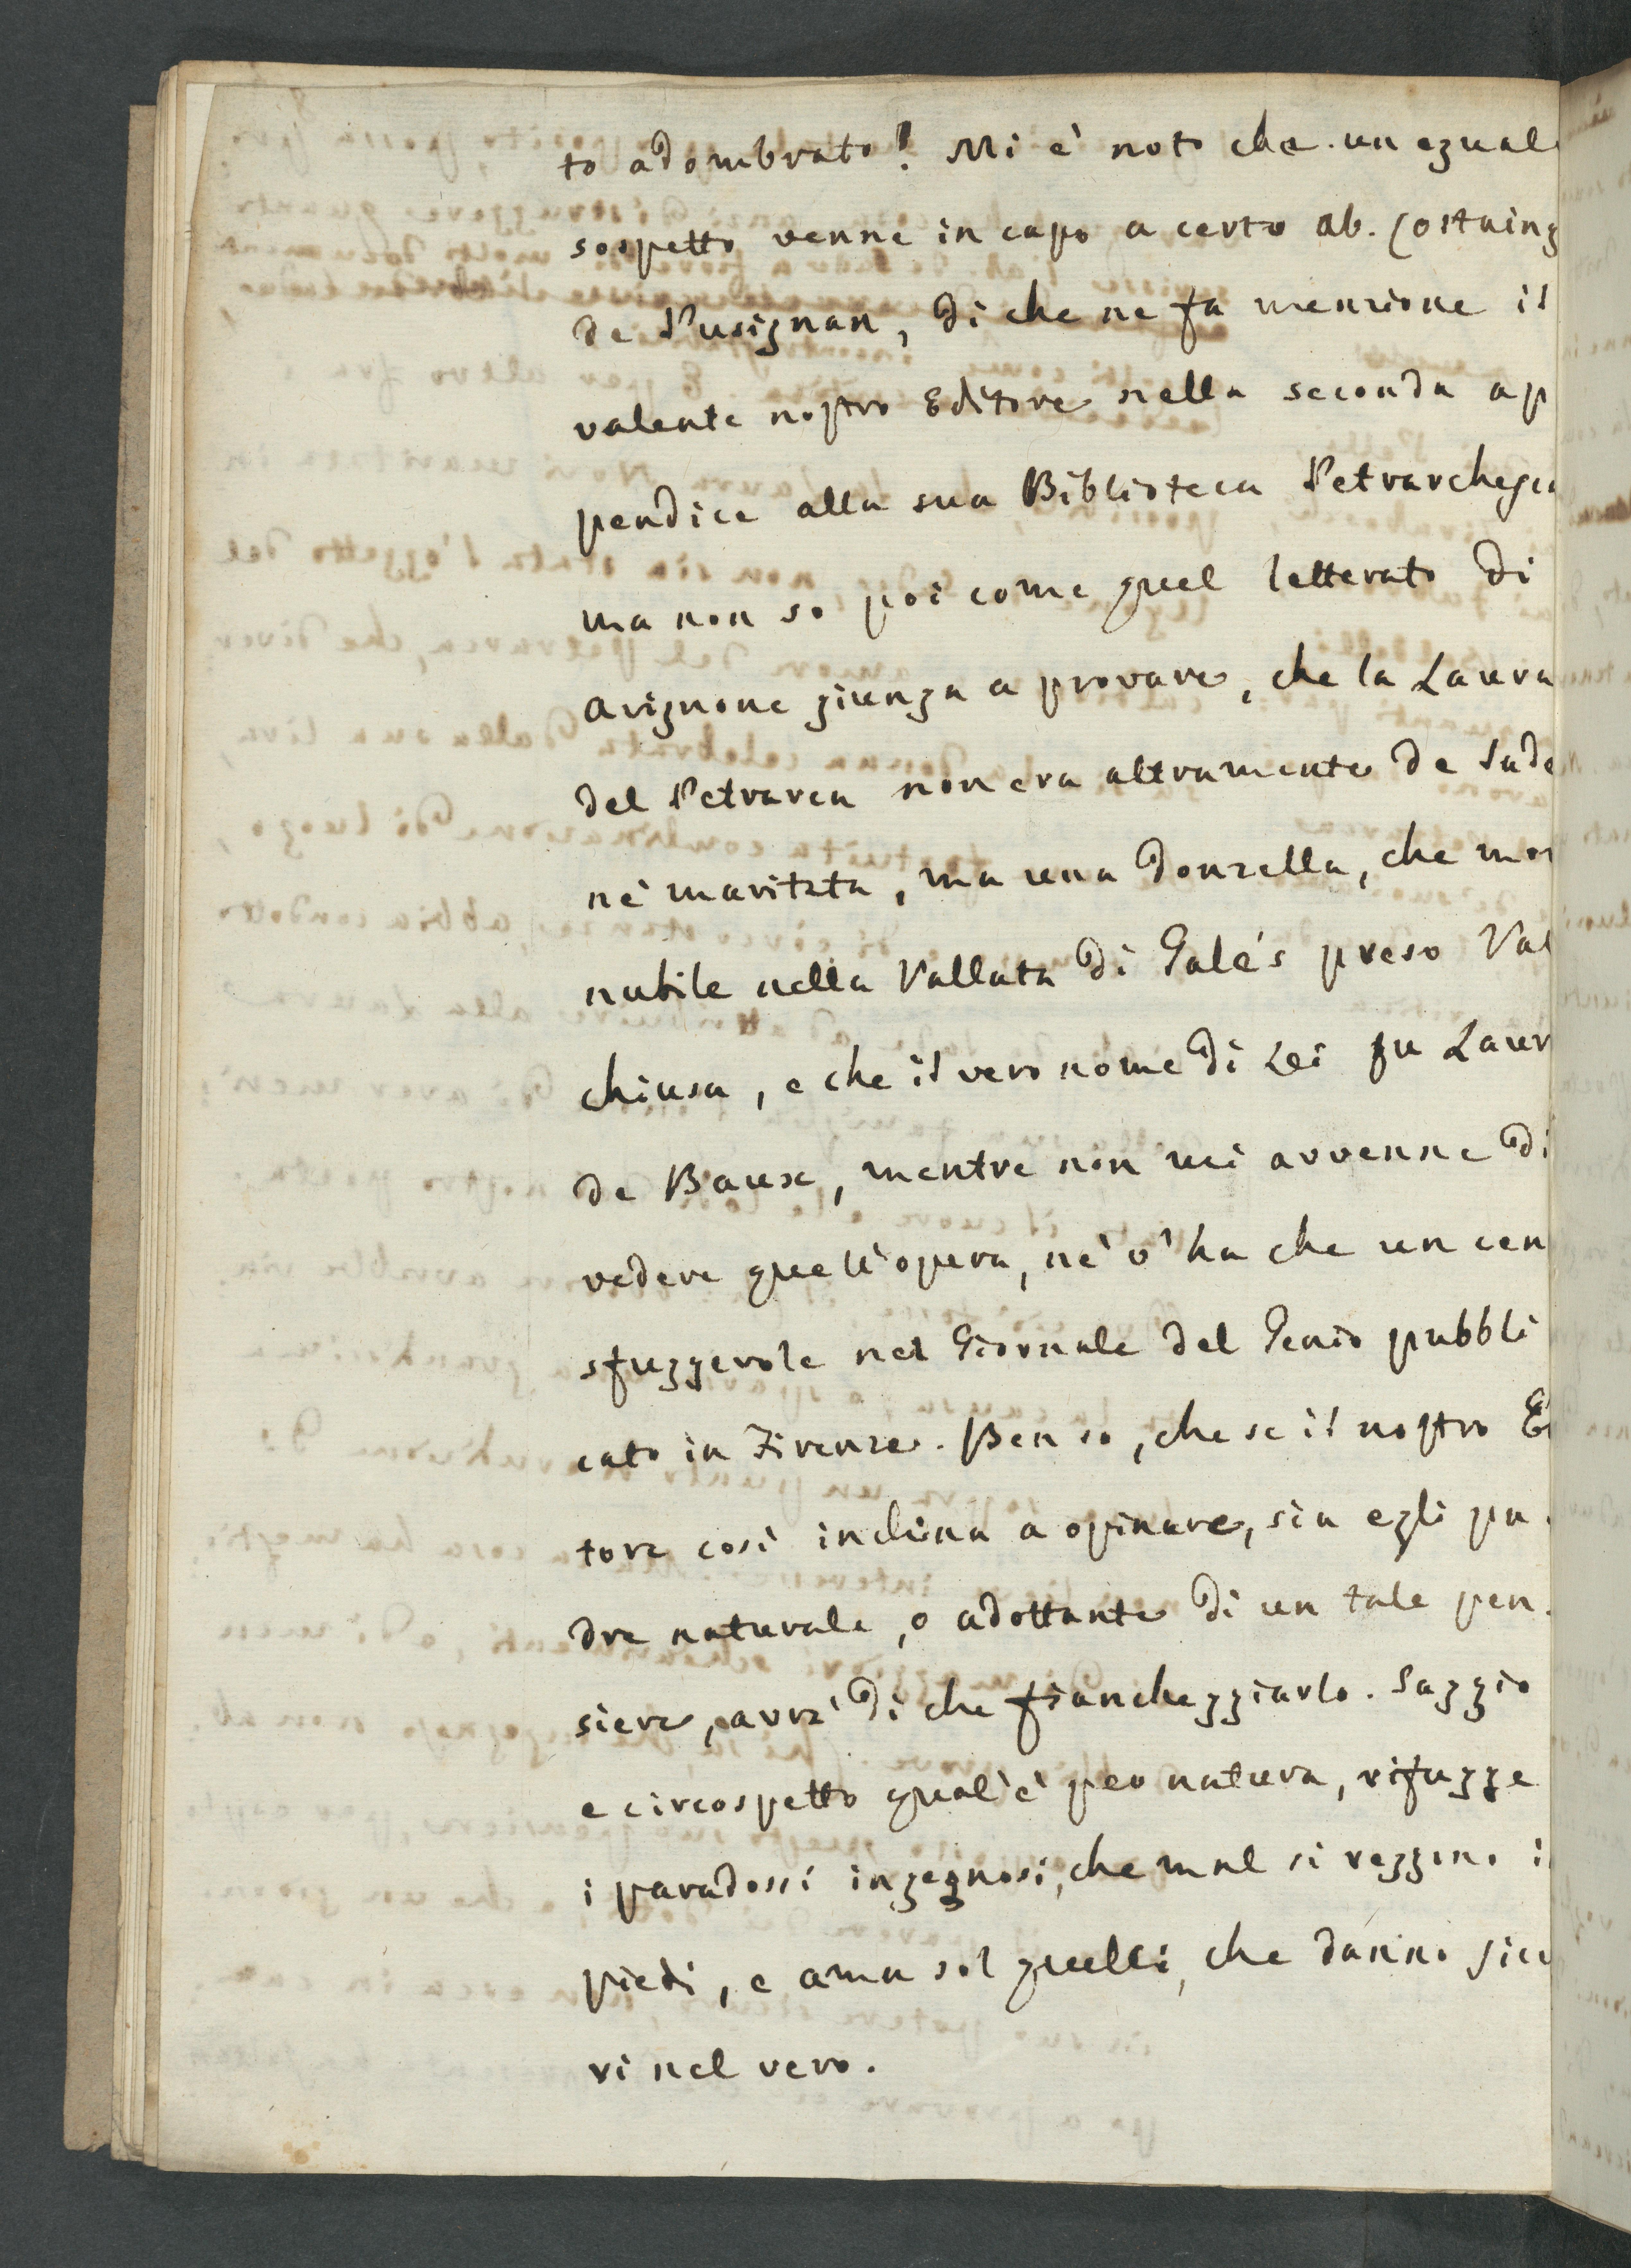 to adombrato! Mi è noto che un egual
sospetto venne in capo a certo ab. Costaing
de Pusignan, di che ne fa menzione il
valente nostro Editore nella seconda ap
pendice alla sua Biblioteca Petrarchesca
ma non so poi come quel letterato di
Avignone giunga a provare, che la Laura
del Petrarca non era altramente de Sade
nè maritata, ma una donzella, che mor
nubile nella Vallata di Galés preso Val
chiusa, e che il vero nome di Lei fu Laur
de Baux, mentre non mi avvenne di
vedere quell'opera, nè v'ha che un cen
sfuggevole nel Giornale del Genio pubbli
cato in Firenze. Ben so, che se il nostro E
tore così inclina a opinare, sia egli pa
dre naturale, o adottante di un tale pen
siere, avrà di che fiancheggiarlo. Saggio
e circospetto qual'è per natura, rifugge
i paradossi ingegnosi, che mal si reggono i
piedi, e ama sol quelli, che danno sicu
ri nel vero.